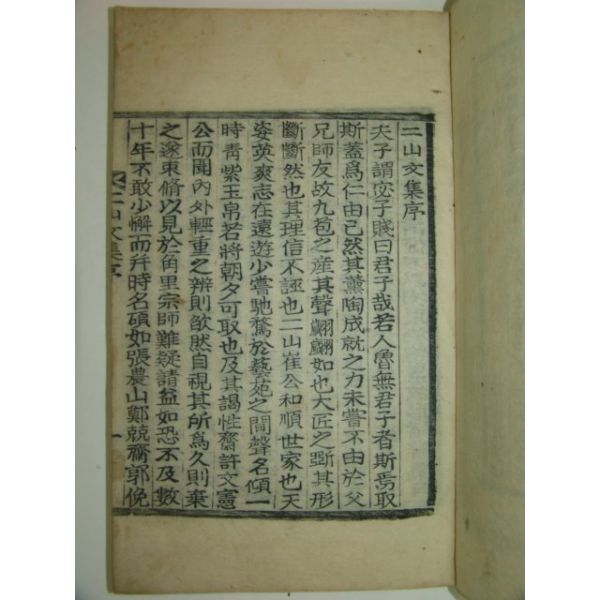 二山文集序
夫子謂宓子賤曰君子哉若人魯無君子者斯焉取
斯蓋爲仁由己然其薰陶成就之力未嘗不由於父
兄師友故九苞之産其聲翽翽如也大匠之斲其形
斷斷然也其理信不誣也二山崔公和順世家也天
姿英爽志在遠遊少嘗馳騖於藝苑之間聲名傾一
時靑紫玉帛若將朝夕可取也及其謁性齋許文憲
公而聞內外輕重之辨則欿然自視其所爲久則棄
之遂束脩以見於角里宗師難疑請益如恐不及數
十年不敢少懈而幷時名碩如張農山鄭兢齋郭俛
二山文集序
一